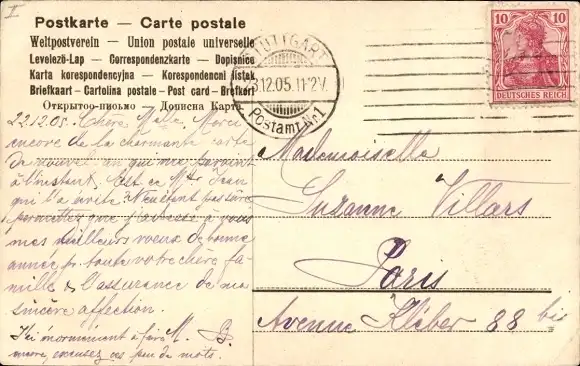 Postkarte — Carte postale
Weltpostverein — Union postale universelle
Levelező-Lap — Correspondenzkarte — Dopisnice
Karta korespondencyjna — Korespondencni listek
Briefkaart - Cartolina postale - Post card - Brefkort
Открытое-письмо — Дописна Карта
STUTTGART
3.12.05.11-12V.
Postamt Nr.1
10 10
DEUTSCHES REICH
22.12.05. Chère Melle. Merci
encore de la charmante carte
de nouvel an qui me parvient
à l'instant. Est ce Mr Jean
qui l'a écrite
permettez que j'adresse à vous
mes meilleurs voeux de bonne
année pr. toute votre chère fa-
mille & l'assurance de ma
sincère affection.
J'ai énormément à faire M. B.
encore, excusez ce peu de mots.
Mademoiselle
Suzanne Villars
Paris
Avenue Kléber 88 bis
II